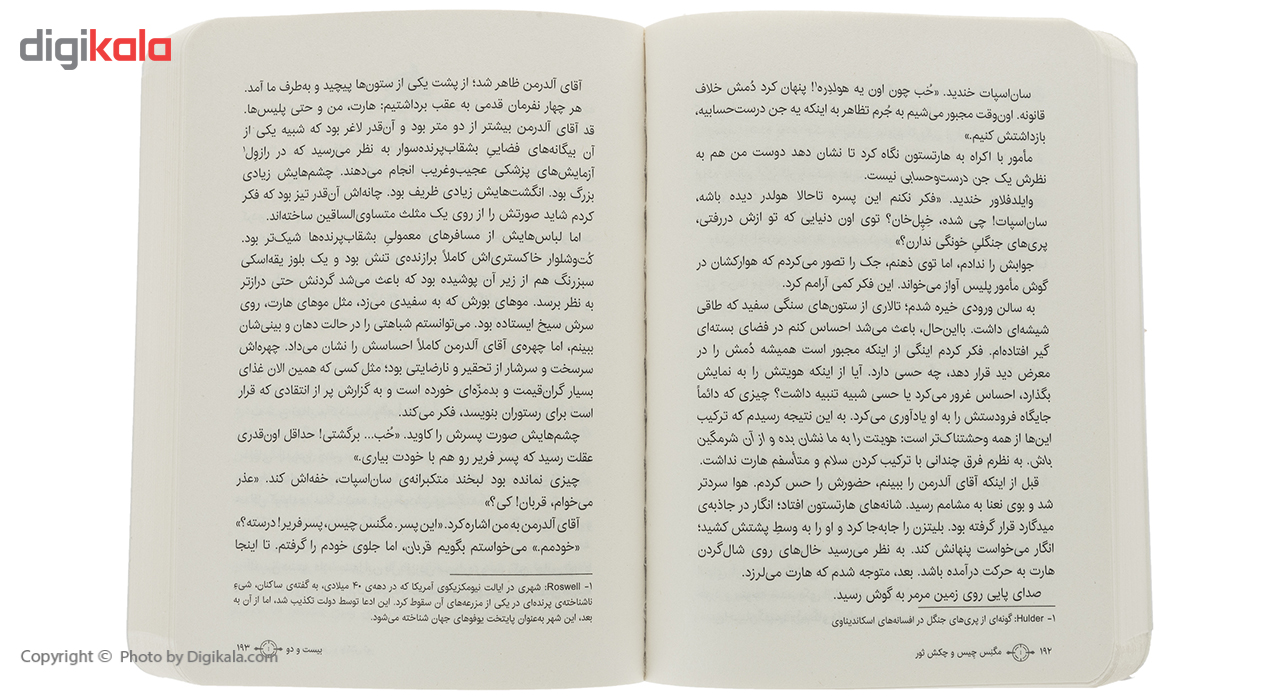 digikala
سان‌اسپات خندید. «خُب چون اون یه هولدِره¹! پنهان کرد دُمش خلاف
قانونه. اون‌وقت مجبور می‌شیم به جُرم تظاهر به اینکه یه جن درست‌حسابیه،
بازداشتش کنیم.»
مأمور با اکراه به هارتستون نگاه کرد تا نشان دهد دوست من هم به
نظرش یک جن درست‌وحسابی نیست.
وایلدفلاور خندید. «فکر نکنم این پسره تاحالا هولدر دیده باشه،
سان‌اسپات! چی شده، خِپِل‌خان؟ توی اون دنیایی که تو ازش دررفتی،
پری‌های جنگلیِ خونگی ندارن؟»
جوابش را ندادم، اما توی ذهنم، جک را تصور می‌کردم که هوارکشان در
گوش مأمور پلیس آواز می‌خواند. این فکر کمی آرامم کرد.
به سالن ورودی خیره شدم؛ تالاری از ستون‌های سنگی سفید که طاقی
شیشه‌ای داشت. بااین‌حال، باعث می‌شد احساس کنم در فضای بسته‌ای
گیر افتاده‌ام. فکر کردم اینگی از اینکه مجبور است همیشه دُمش را در
معرض دید قرار دهد، چه حسی دارد. آیا از اینکه هویتش را به نمایش
بگذارد، احساس غرور می‌کرد یا حسی شبیه تنبیه داشت؟ چیزی که دائماً
جایگاه فرودستش را به او یادآوری می‌کرد. به این نتیجه رسیدم که ترکیب
این‌ها از همه وحشتناک‌تر است: هویتت را به ما نشان بده و از آن شرمگین
باش. به نظرم فرق چندانی با ترکیب کردن سلام و متأسفم هارت نداشت.
قبل از اینکه آقای آلدرمن را ببینم، حضورش را حس کردم. هوا سردتر
شد و بوی نعنا به مشامم رسید. شانه‌های هارتستون افتاد؛ انگار در جاذبه‌ی
میدگارد قرار گرفته بود. بلیتزن را جابه‌جا کرد و او را به وسطِ پشتش کشید؛
انگار می‌خواست پنهانش کند. به نظر می‌رسید خال‌های روی شال‌گردن
هارت به حرکت درآمده باشد. بعد، متوجه شدم که هارت می‌لرزد.
صدای پایی روی زمین مرمر به گوش رسید.
۱- Hulder: گونه‌ای از پری‌های جنگل در افسانه‌های اسکاندیناوی
۱۹۲ مگنِس چیس و چکش ثور
آقای آلدرمن ظاهر شد؛ از پشت یکی از ستون‌ها پیچید و به‌طرف ما آمد.
هر چهار نفرمان قدمی به عقب برداشتیم: هارت، من و حتی پلیس‌ها.
قد آقای آلدرمن بیشتر از دو متر بود و آن‌قدر لاغر بود که شبیه یکی از
آن بیگانه‌های فضاییِ بشقاب‌پرنده‌سوار به نظر می‌رسید که در رازول¹
آزمایش‌های پزشکی عجیب‌وغریب انجام می‌دهند. چشم‌هایش زیادی
بزرگ بود. انگشت‌هایش زیادی ظریف بود. چانه‌اش آن‌قدر تیز بود که فکر
کردم شاید صورتش را از روی یک مثلث متساوی‌الساقین ساخته‌اند.
اما لباس‌هایش از مسافرهای معمولیِ بشقاب‌پرنده‌ها شیک‌تر بود.
کُت‌وشلوار خاکستری‌اش کاملاً برازنده‌ی تنش بود و یک بلوز یقه‌اسکی
سبزرنگ هم از زیر آن پوشیده بود که باعث می‌شد گردنش حتی درازتر
به نظر برسد. موهای بورش که به سفیدی می‌زد، مثل موهای هارت، روی
سرش سیخ ایستاده بود. می‌توانستم شباهتی را در حالت دهان و بینی‌شان
ببینم، اما چهره‌ی آقای آلدرمن کاملاً احساسش را نشان می‌داد. چهره‌اش
سرسخت و سرشار از تحقیر و نارضایتی بود؛ مثل کسی که همین الان غذای
بسیار گران‌قیمت و بدمزّه‌ای خورده است و به گزارش پر از انتقادی که قرار
است برای رستوران بنویسد، فکر می‌کند.
چشم‌هایش صورت پسرش را کاوید. «خُب... برگشتی! حداقل اون‌قدری
عقلت رسید که پسر فریر رو هم با خودت بیاری.»
چیزی نمانده بود لبخند متکبرانه‌ی سان‌اسپات، خفه‌اش کند. «عذر
می‌خوام، قربان! کی؟»
آقای آلدرمن به من اشاره کرد. «این پسر. مگنس چیس، پسر فریر! درسته؟»
«خودمم.» می‌خواستم بگویم قربان، اما جلوی خودم را گرفتم. تا اینجا
۱- Roswell: شهری در ایالت نیومکزیکوی آمریکا که در دهه‌ی ۴۰ میلادی، به گفته‌ی ساکنان، شیءِ
ناشناخته‌ی پرنده‌ای در یکی از مزرعه‌های آن سقوط کرد. این ادعا توسط دولت تکذیب شد، اما از آن به
بعد، این شهر به‌عنوان پایتخت یوفوهای جهان شناخته می‌شود.
بیست و دو ۱۹۳
Copyright © Photo by Digikala.com